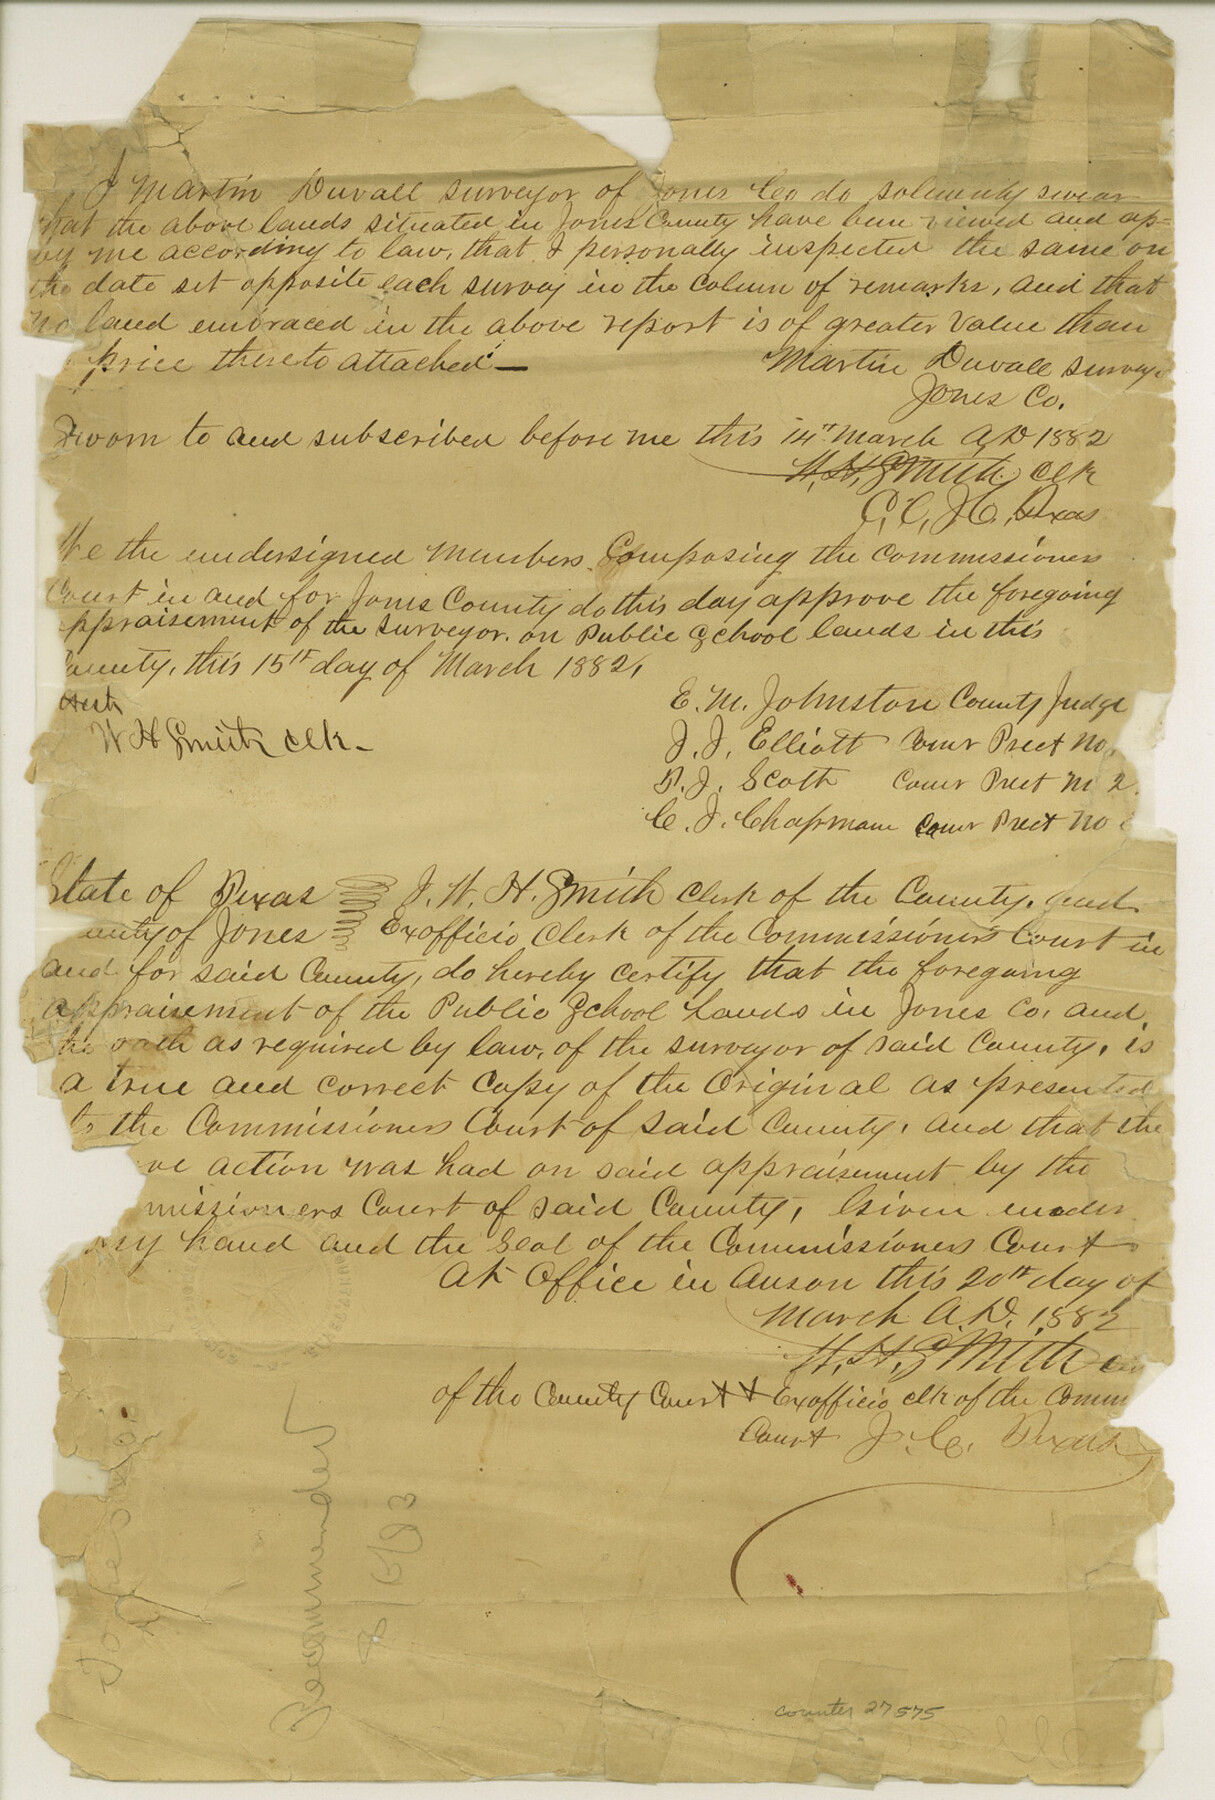 I Martin Duvall surveyor of Jones Co do solemnly swear
that the above lands situated in Jones County have been viewed and ap=
by me according to law, that I personally inspected the same on
the date set opposite each survey in the Column of remarks, and that
no land embraced in the above report is of greater value than
price thereto attached —
Martin Duvall survey
Jones Co.
Sworn to and subscribed before me this 14th March A,D 1882
W. H. Smith Clk
C, C, J C, Texas
We the undersigned Members Composing the Commissioners
Court in and for Jones County do this day approve the foregoing
ppraisement of the Surveyor. on Public School lands in this
County, this 15th day of March 1882,
ttest
W H Smith Clk -
E. M. Johnston County Judge
J. J. Elliott Comr Prect No
P. J. Scott Comr Prect No 2
C. J. Chapman Comr Prect No
State of Texas I, W. H. Smith Clerk of the County, and
unty of Jones Exofficio Clerk of the Commissioners Court in
and for said County, do hereby certify that the foregoing
appraisement of the Public School Lands in Jones Co, and
the oath as required by law, of the surveyor of said County, is
a true and correct Copy of the Original as presented
to the Commissioners Court of said County, and that the
ve action was had on said appraisement by the
missioners Court of said County, Given under
my hand and the Seal of the Commissioners Court
At Office in Anson this 20th day of
March A.D. 1882
W. H. Smith Clk
of the County Court & Exofficio clk of the Comm
Court J. C. Texas
Recommended
counter 27575